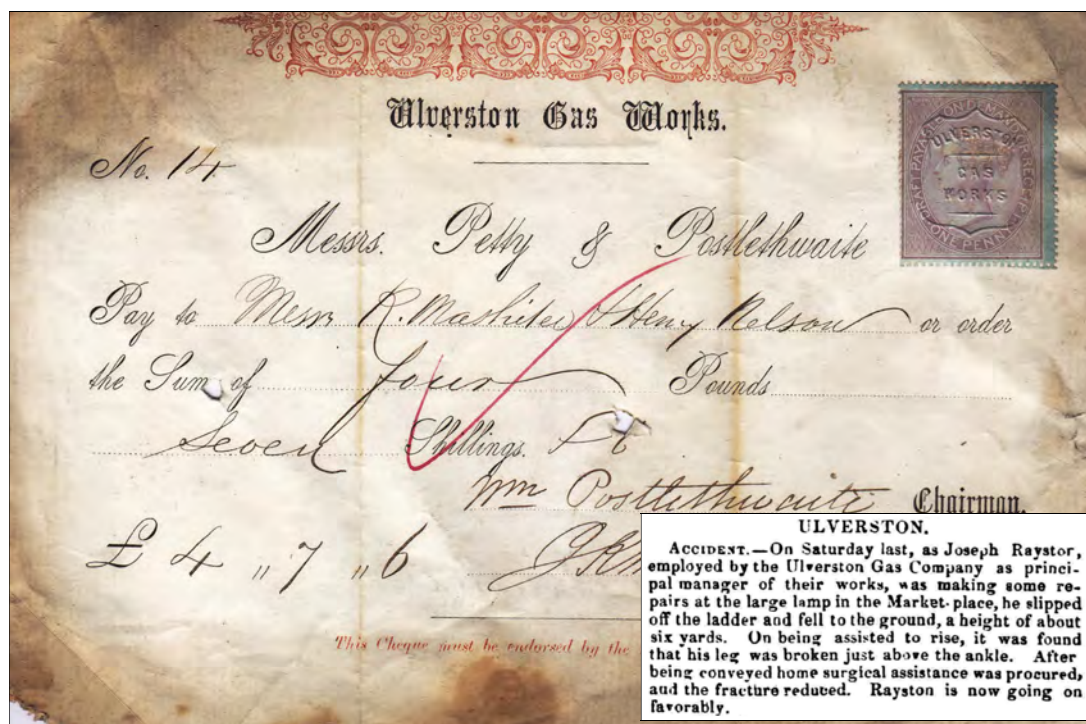 Ulverston Gas Works.
No. 14
DRAFT PAYABLE ON DEMAND OR RECEIPT
ULVERSTON
GAS
WORKS
ONE PENNY
Messrs. Petty & Postlethwaite
Pay to Messrs R. Mashiter & Henry Nelson or order
the Sum of four Pounds
Seven Shillings.
Wm Postlethwaite Chairman.
£ 4 " 7 " 6
This Cheque must be endorsed by the
ULVERSTON.
ACCIDENT.—On Saturday last, as Joseph Raystor,
employed by the Ulverston Gas Company as princi-
pal manager of their works, was making some re-
pairs at the large lamp in the Market-place, he slipped
off the ladder and fell to the ground, a height of about
six yards. On being assisted to rise, it was found
that his leg was broken just above the ankle. After
being conveyed home surgical assistance was procured,
and the fracture reduced. Rayston is now going on
favorably.